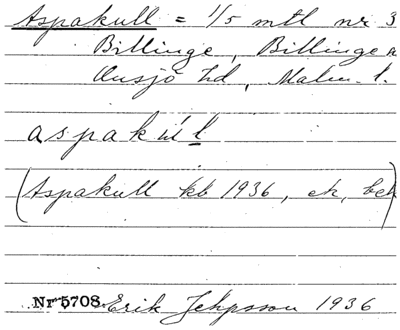 Aspakull = 1/5 mtl nr 3
Billinge, Billinge
Onsjö hd, Malm. l.
aspakùl̲l
(Aspakull kb 1936, ek, bet
Nr 5708. Erik Jeppsson 1936